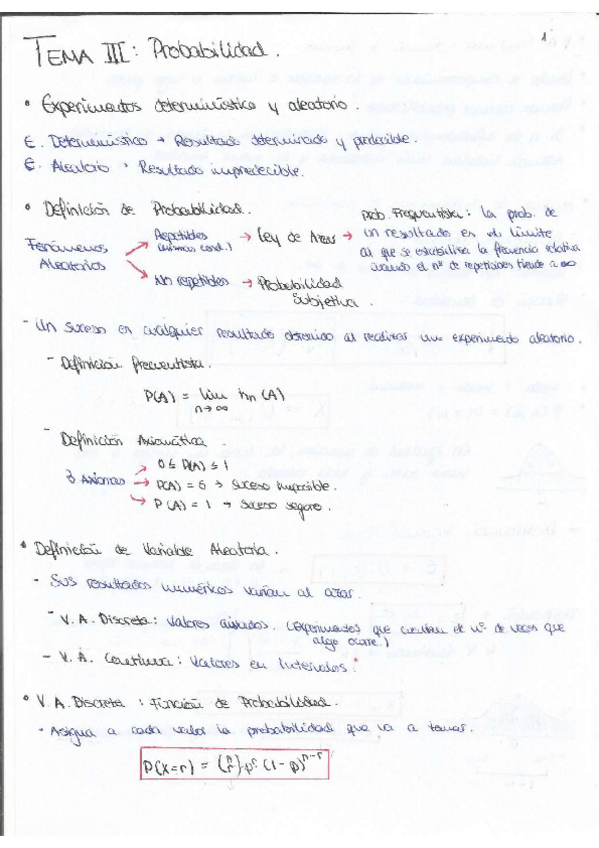 1
TEMA III: Probabilidad.
• Experimentos determinístico y aleatorio.
E. Determinístico → Resultado determinado y predecible.
E. Aleatorio → Resultado impredecible.
• Definición de Probabilidad.
Fenómenos Aleatorios
→ Repetidos (mismas cond.) → Ley de Azar →
Prob. Frequentista: la prob. de
un resultado es el límite
al que se estabiliza la frecuencia relativa
cuando el nº de repeticiones tiende a ∞
→ No repetidos → Probabilidad
Subjetiva.
- Un suceso es cualquier resultado obtenido al realizar un experimento aleatorio.
- Definición frecuentista.
P(A) = lim hn (A)
n→∞
- Definición Axiomática.
3 Axiomas
→ 0 ≤ P(A) ≤ 1
→ P(A) = 0 → Suceso imposible.
→ P(A) = 1 → Suceso seguro.
• Definición de Variable Aleatoria.
- Sus resultados numéricos varían al azar.
- V.A. Discreta: Valores aislados. (Experimentos que cuentan el nº de veces que
algo ocurre.)
- V.A. Continua: Valores en Intervalos.
• V.A. Discreta: Función de Probabilidad.
- Asigna a cada valor la probabilidad que va a tomar.
P(X=r) = (n r)·pʳ (1-p)ⁿ⁻ʳ